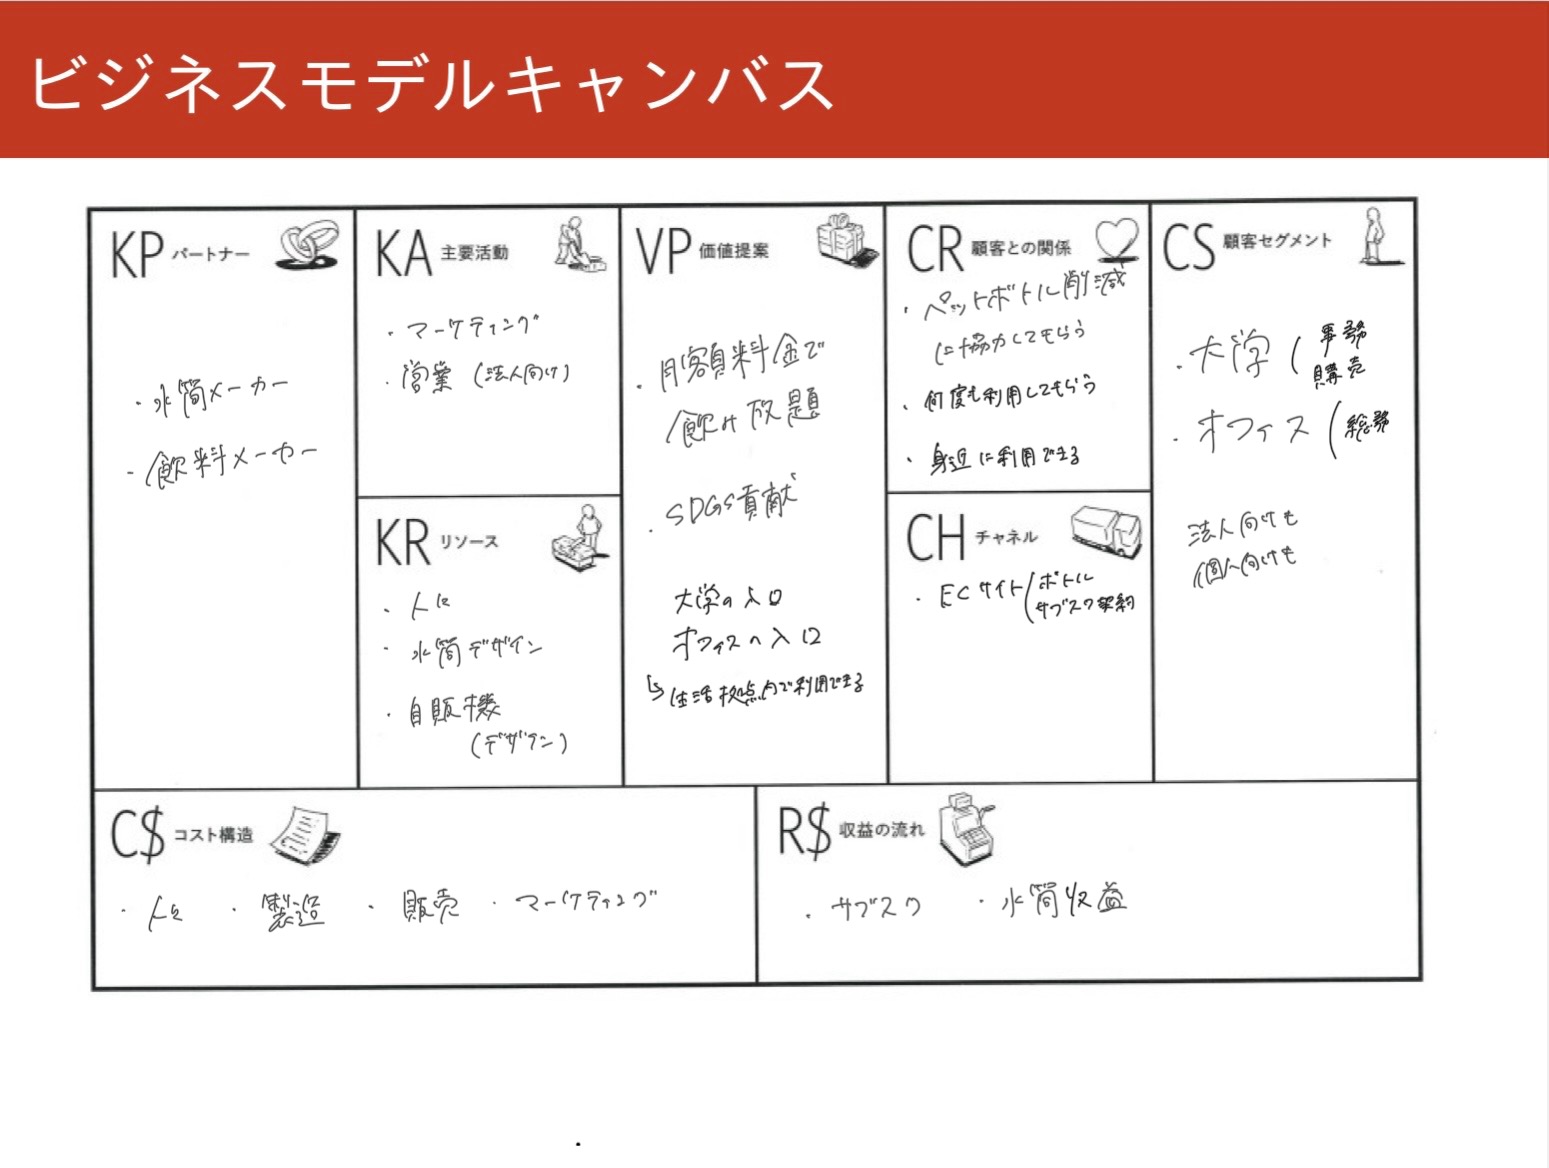 ビジネスモデルキャンバス
KP パートナー
・水筒メーカー
・飲料メーカー
KA 主要活動
・マーケティング
・営業(法人向け)
KR リソース
・人
・水筒デザイン
・自販機
(デザイン)
VP 価値提案
・月額料金で
飲み放題
・SDGs貢献
大学の入口
オフィスの入口
↳生活拠点内で利用できる
CR 顧客との関係
・ペットボトル削減
に協力してもらう
・何度も利用してもらう
・身近に利用できる
CH チャネル
・ECサイト(ボトル
サブスク契約
CS 顧客セグメント
・大学(事務
購売
・オフィス(総務
法人向けも
個人向けも
C$ コスト構造
・人 ・製造 ・販売 ・マーケティング
R$ 収益の流れ
・サブスク ・水筒収益